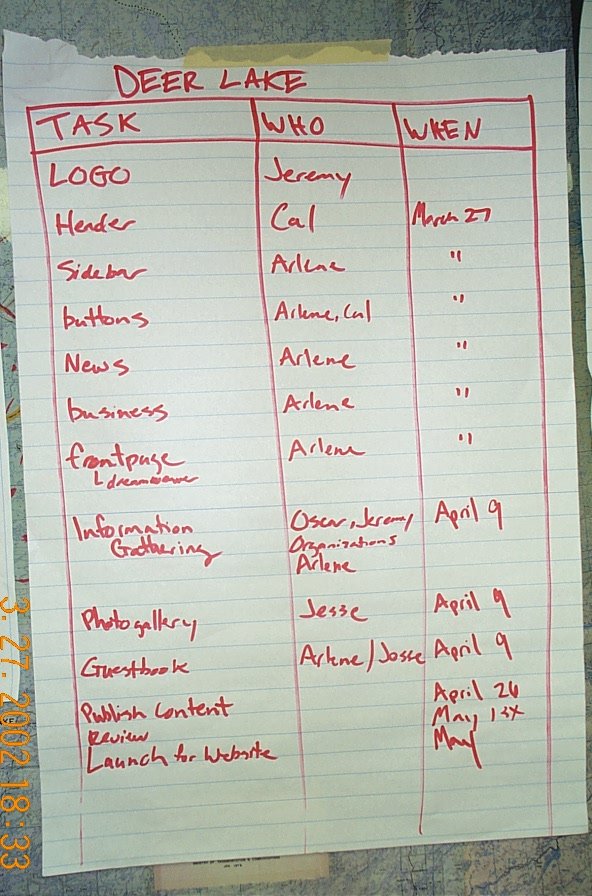 DEER LAKE
TASK WHO WHEN
LOGO Jeremy
Header Cal March 27
Sidebar Arlene "
buttons Arlene, Cal "
News Arlene "
business Arlene "
frontpage Arlene "
dreamweaver
Information Oscar, Jeremy April 9
Gathering Organizations
Arlene
Photogallery Jesse April 9
Guestbook Arlene/Jesse April 9
Publish Content April 26
Review May 1st
Launch for Website May
3.27.2002 18:33